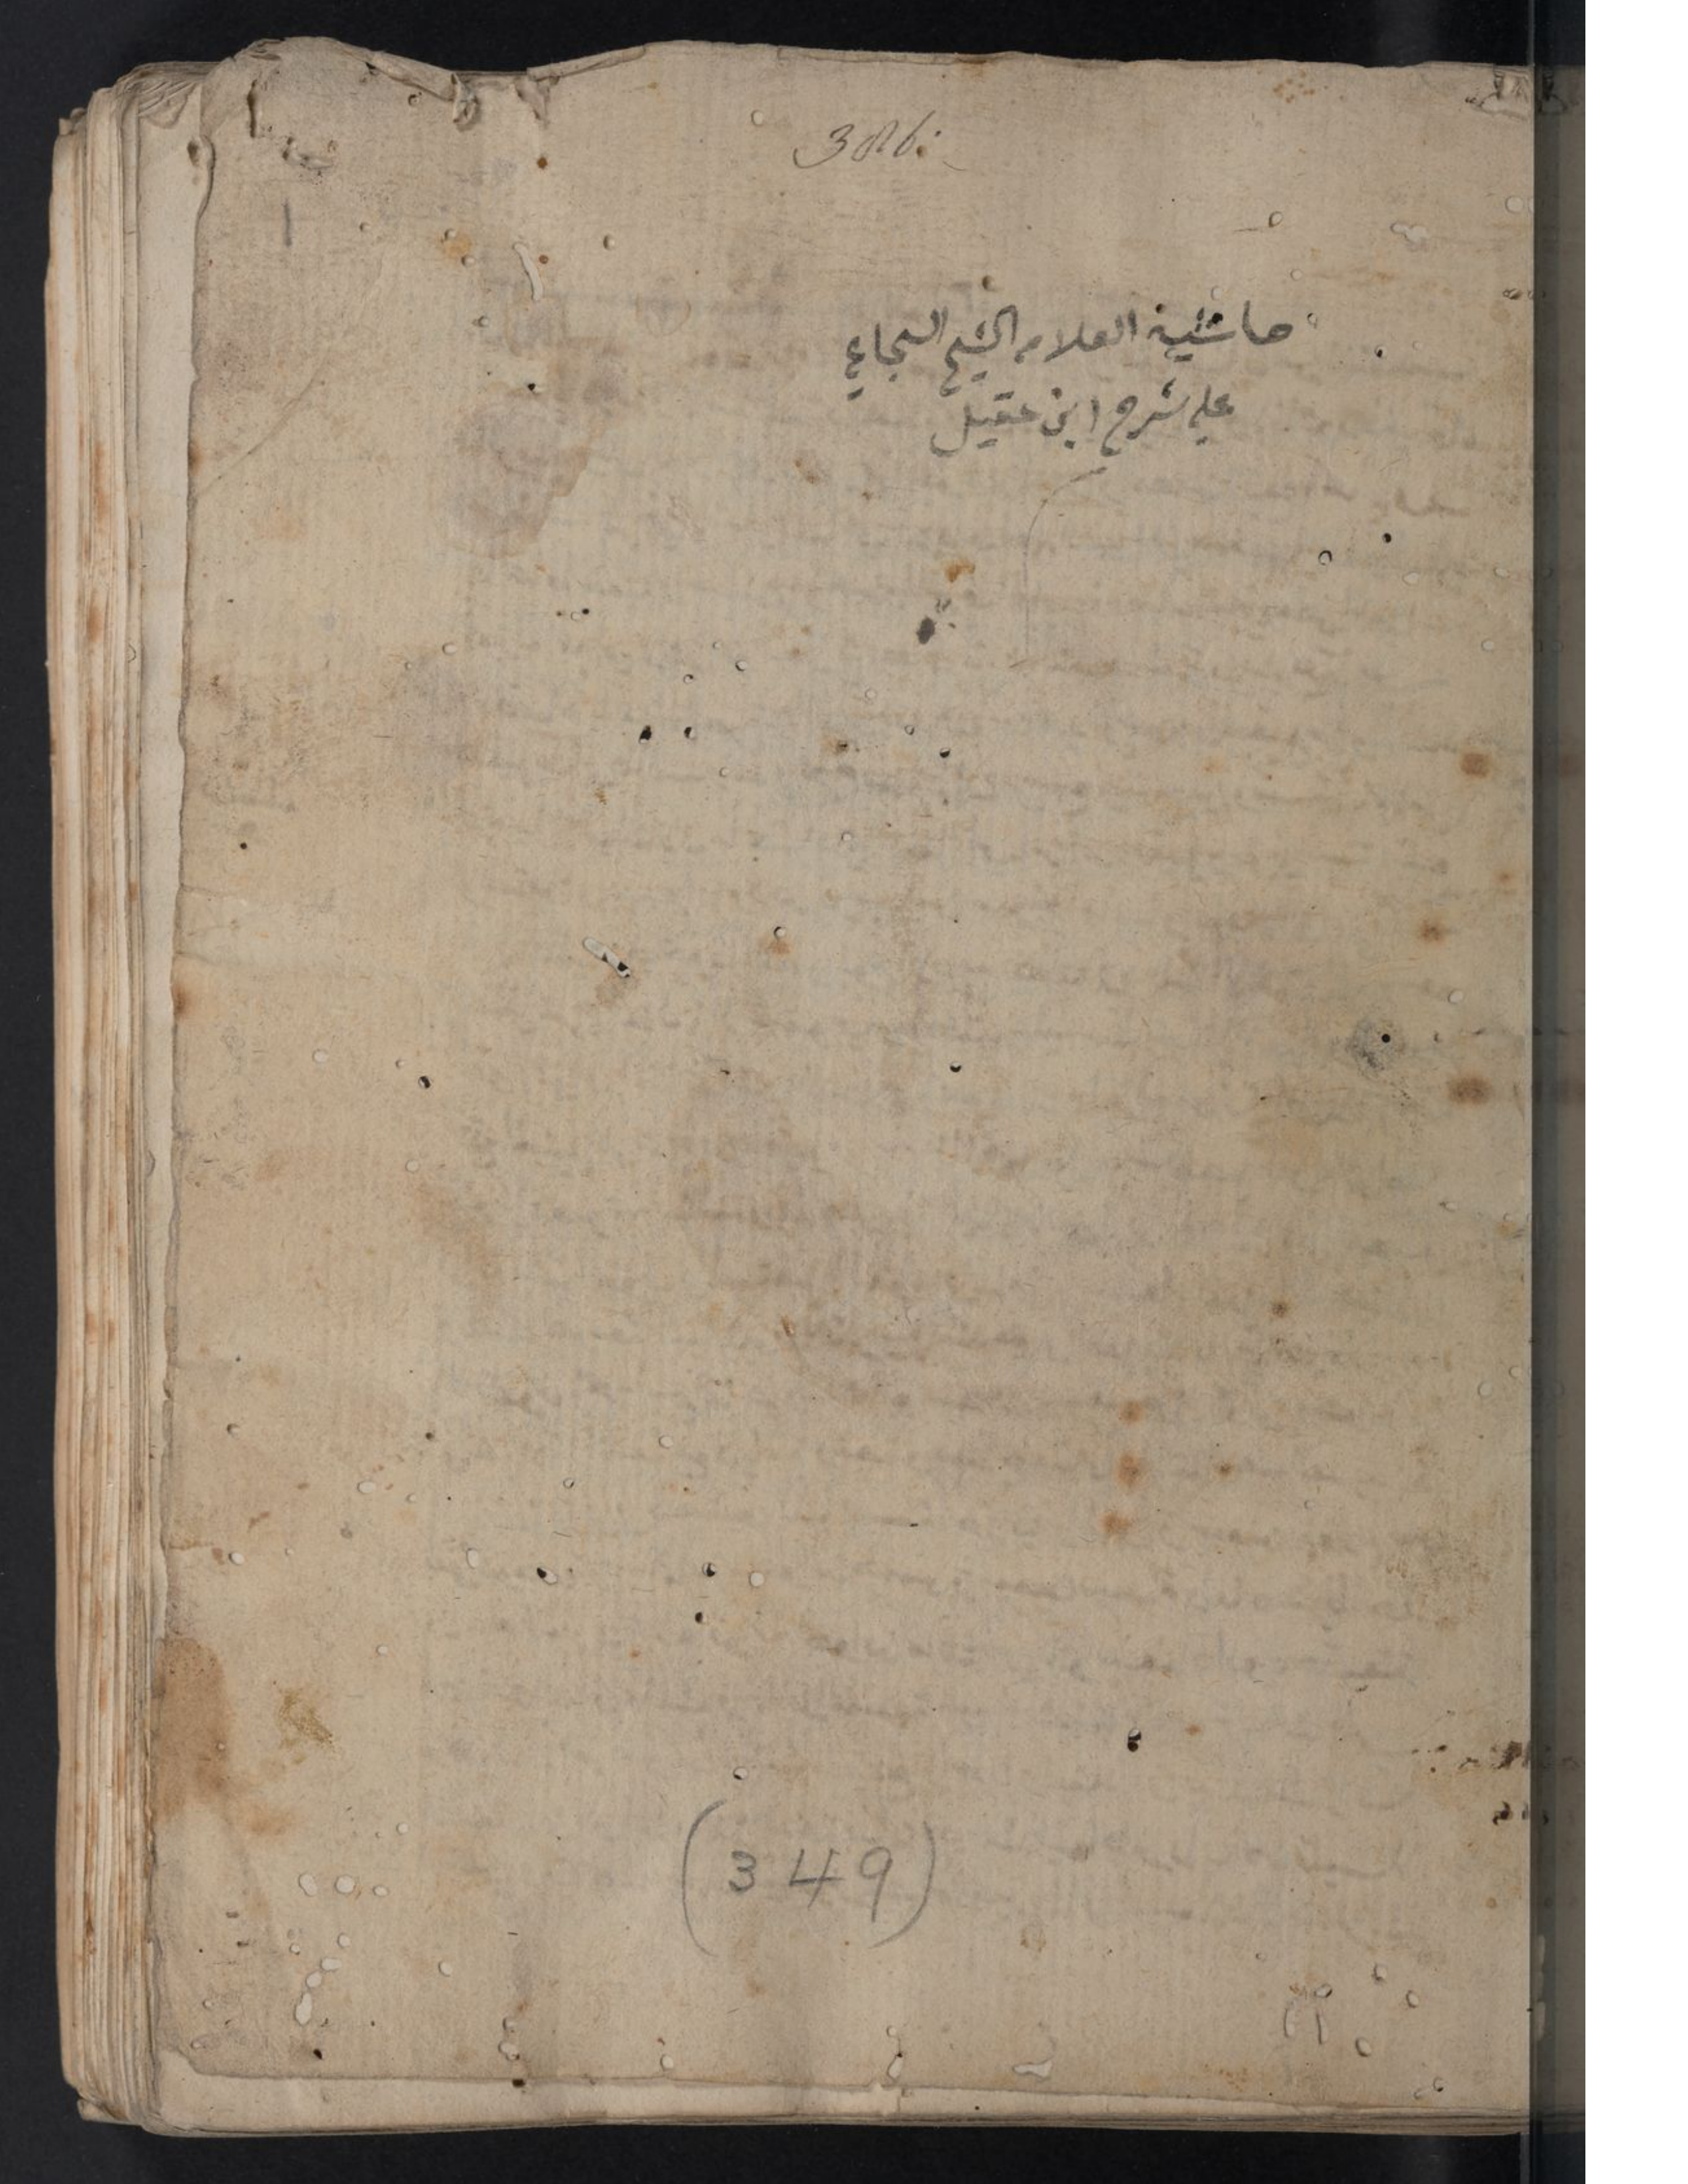 386
١
حاشية العلامه الشيخ السجاعي
علي شرح ابن عقيل
(349)